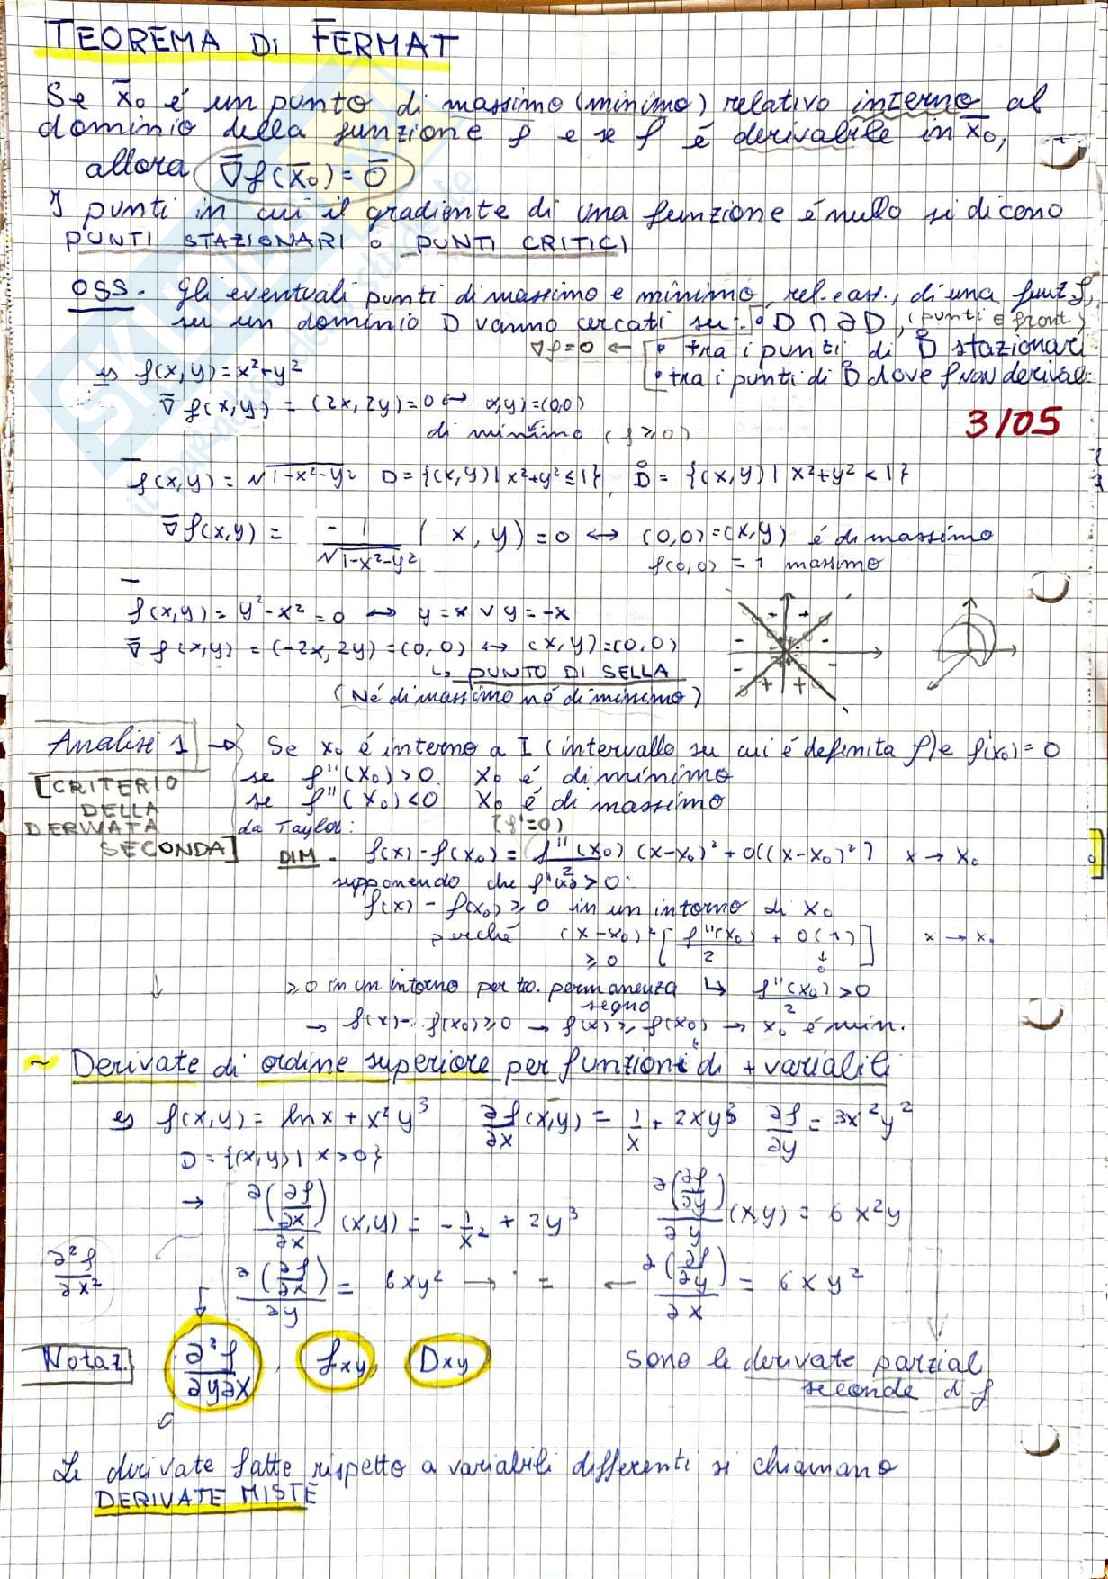 TEOREMA Di FERMAT
Se x̄₀ é un punto di massimo (minimo) relativo interno al
dominio della funzione f e se f é derivabile in x̄₀,
allora ∇̄f(x̄₀) = 0̄
I punti in cui il gradiente di una funzione é nullo si dicono
PUNTI STAZIONARI o PUNTI CRITICI
OSS. Gli eventuali punti di massimo e minimo, rel. e ass., di una funz f,
su un dominio D vanno cercati su: • D ∩ ∂D, (punti e front.)
∇f=0 ← • tra i punti di D̊ stazionari
es f(x,y) = x²+y² • tra i punti di D̊ dove f non derivab.
∇̄ f(x,y) = (2x, 2y) = 0 ↔ (x,y) = (0,0)
di minimo (f ≥ 0)
3/05
- f(x,y) = √1-x²-y² D = {(x,y) | x²+y² ≤ 1} , D̊ = {(x,y) | x²+y² < 1}
∇̄ f(x,y) = -1/√1-x²-y² (x, y) = 0 ↔ (0,0) = (x,y) é di massimo
f(0,0) = 1 massimo
- f(x,y) = y²-x² = 0 → y = x ∨ y = -x
∇̄ f(x,y) = (-2x, 2y) = (0,0) ↔ (x,y) = (0,0)
↳ PUNTO DI SELLA
(Né di massimo né di minimo)
Analisi 1 → Se x₀ é interno a I (intervallo su cui é definita f) e f'(x₀) = 0
[CRITERIO DELLA DERIVATA SECONDA]
se f''(x₀) > 0 x₀ é di minimo
se f''(x₀) < 0 x₀ é di massimo
da Taylor: (f'=0)
DIM. f(x) - f(x₀) = f''(x₀)/2 (x-x₀)² + o((x-x₀)²) x → x₀
supponendo che f''(x₀) > 0:
f(x) - f(x₀) ≥ 0 in un intorno di x₀
perché (x-x₀)² [f''(x₀)/2 + o(1)] x → x₀
≥ 0 ↓ 0
≥ 0 in un intorno per teo. permanenza segno ↳ f''(x₀)/2 > 0
→ f(x) - f(x₀) ≥ 0 → f(x) ≥ f(x₀) → x₀ é min.
~ Derivate di ordine superiore per funzioni di + variabili
es f(x,y) = ln x + x²y³ ∂f/∂x (x,y) = 1/x + 2xy³ ∂f/∂y = 3x²y²
D = {(x,y) | x > 0}
→ ∂(∂f/∂x)/∂x (x,y) = -1/x² + 2y³ ∂(∂f/∂y)/∂y (x,y) = 6x²y
∂²f/∂x²
∂(∂f/∂x)/∂y = 6xy² → = ← ∂(∂f/∂y)/∂x = 6xy²
Notaz. ∂²f/∂y∂x , fxy, Dxy sono le derivate parziali
seconde di f
Le derivate fatte rispetto a variabili differenti si chiamano
DERIVATE MISTE